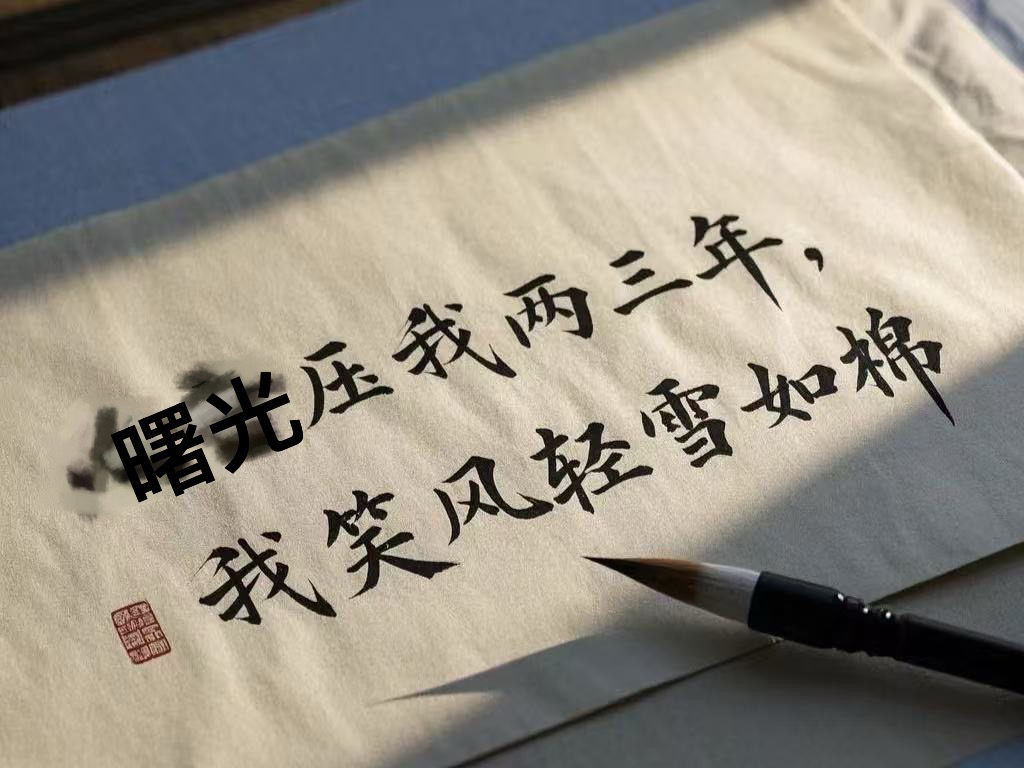 曙光压我两三年，
我笑风轻雪如棉